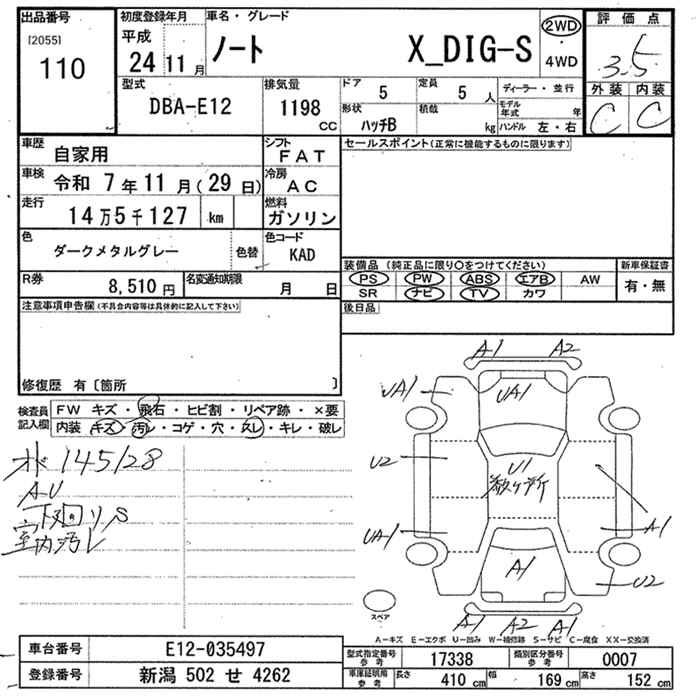 出品番号
[2055]
110
初度登録年月
平成
24 11 月
車名・グレード
ノート X_DIG-S
2WD
・
4WD
評価点
3.5
外装 内装
C C
型式
DBA-E12
排気量
1198 CC
ドア 5
定員 5 人
形状 ハッチB
積載 kg
ディーラー・並行
モデル年式 年
ハンドル 左・右
車歴 自家用
シフト FAT
車検 令和 7年 11月(29日)
冷房 AC
走行 14万5千127 km
燃料 ガソリン
色 ダークメタルグレー 色替
色コード KAD
R券 8,510 円
名変通知期限 月 日
セールスポイント(正常に機能するものに限ります)
装備品 (純正品に限り○をつけてください)
PS PW ABS エアB AW
SR ナビ TV カワ
新車保証書
有・無
後日品
注意事項申告欄(不具合内容等は具体的に記入して下さい)
修復歴 有〔箇所 〕
検査員記入欄
FW キズ・飛石・ヒビ割・リペア跡・×要
内装 キズ・汚レ・コゲ・穴・スレ・キレ・破レ
145128
AU
下廻りS
室内汚レ
A1 A2
UA1 UA1
U2
U1
数ヶ所
UA1 A1
A1
U2
A1 A2 A1
スペア
A-キズ E-エクボ U-凹み W-補修跡 S-サビ C-腐食 XX-交換済
車台番号 E12-035497
登録番号 新潟 502 せ 4262
型式指定番号 参考 17338
類別区分番号 参考 0007
車庫証明用 参考 長さ 410 cm 幅 169 cm 高さ 152 cm